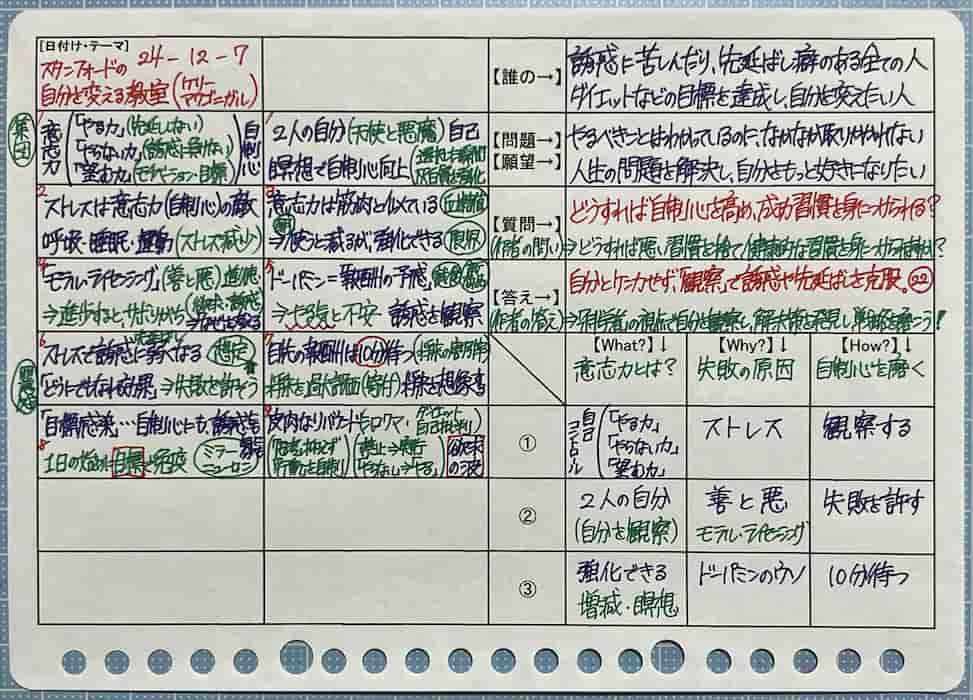 [日付け・テーマ] 24-12-7
スタンフォードの
自分を変える教室(ケリー
マクゴニガル)
集団
1 意志力 「やる力」(先延ばししない)
「やらない力」(誘惑に負けない)
「望む力」(モチベーション・目標)
自制心
1 2人の自分(天使と悪魔) 自己
瞑想で自制心向上
2 ストレスは意志力(自制心)の敵
呼吸・睡眠・運動(ストレス減少)
3 意志力は筋肉と似ている
⇒使うと減るが、強化できる(限界)
4 「モラル・ライセンシング」(善と悪)
⇒進歩すると、サボりがち
5 ドーパミン=報酬の予感
⇒ 不安 誘惑を観察
6 ストレスで誘惑に弱くなる 想定
「どうにでもなれ効果」⇒失敗を許そう
7 目先の報酬は10分待つ
将来を過大評価 将来を想像
8 「目標感染」…自制心にも、誘惑にも
1日の始めに目標で免疫 ミラーニューロン
9 皮肉なリバウンド シロクマ・ダイエット
欲求の波
【誰の→】 誘惑に苦しんだり、先延ばし癖のある全ての人
ダイエットなどの目標を達成し、自分を変えたい人
【問題→】 やるべきことはわかっているのに、なかなか取りかかれない
【願望→】 人生の問題を解決し、自分をもっと好きになりたい
【質問→】 どうすれば自制心を高め、成功習慣を身につけられる?
(作者の問い) ⇒どうすれば悪い習慣を捨て、健康的な習慣を身につけられるか?
【答え→】 自分とケンカせず、「観察」で誘惑や先延ばしを克服。
(作者の答え) ⇒「科学者」の視点で自分を観察し、解決策を発見し、戦略を磨こう!
【What?】↓ 【Why?】↓ 【How?】↓
意志力とは? 失敗の原因 自制心を磨く
① 自己コントロール 「やる力」 ストレス 観察する
「やらない力」
「望む力」
② 2人の自分 善と悪 失敗を許す
(自分を観察) モラル・ライセンシング
③ 強化できる ドーパミンのウソ 10分待つ
増減・瞑想